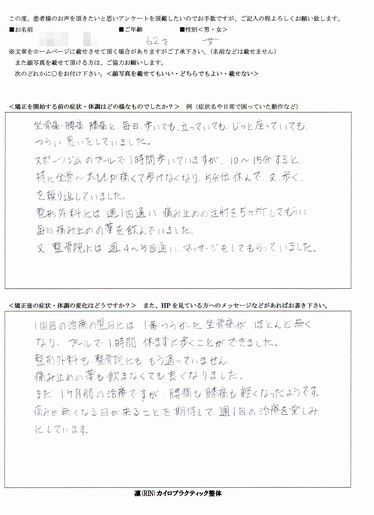 この度、患者様のお声を頂きたいと思いアンケートを頂戴したいのでお手数ですが、ご記入の程よろしくお願い致します。
■お名前 ■ご年齢 ■性別<男・女>
62才 女
※文章をホームページに載せさせて頂く場合がありますがご了承下さい。(名前などは載せません)
また顔写真を載せて頂ける方は、ご協力お願いします。
次のどれかに○をお付け下さい。<顔写真を載せてもいい・どちらでもよい・載せない>
<矯正を開始する前の症状・体調はどの様なものでしたか？ 例（症状名や日常で困っていた動作など）
坐骨痛・腰痛・膝痛と、毎日、歩いても、立っていても、じっと座っていても、
つらい思いをしていました。
スポーツジムのプールで1時間歩いていますが、10～15分すると、
特に坐骨～太ももが痛くて歩けなくなり、5分位休んで、又、歩く、
を繰り返していました。
整形外科には週1回通い痛み止めの注射を5ヶ所してもらい
毎日痛み止めの薬を飲んでいました。
又、整骨院には週4～5回通い、マッサージをしてもらっていました。
<矯正後の症状・体調の変化はどうですか？ また、HPを見ている方へのメッセージなどがあればお書き下さい。
1回目の治療の翌日には1番つらかった坐骨痛がほとんど無く
なり、プールで1時間休まずに歩くことができました。
整形外科も整骨院にももう通っていません
痛み止めの薬も飲まなくても良くなりました。
まだ1ケ月間の治療ですが、腰痛も膝痛も軽くなったようです。
痛みが無くなる日が来ることを期待して、週1回の治療を楽しみ
にしています。
凛(RIN)カイロプラクティック整体